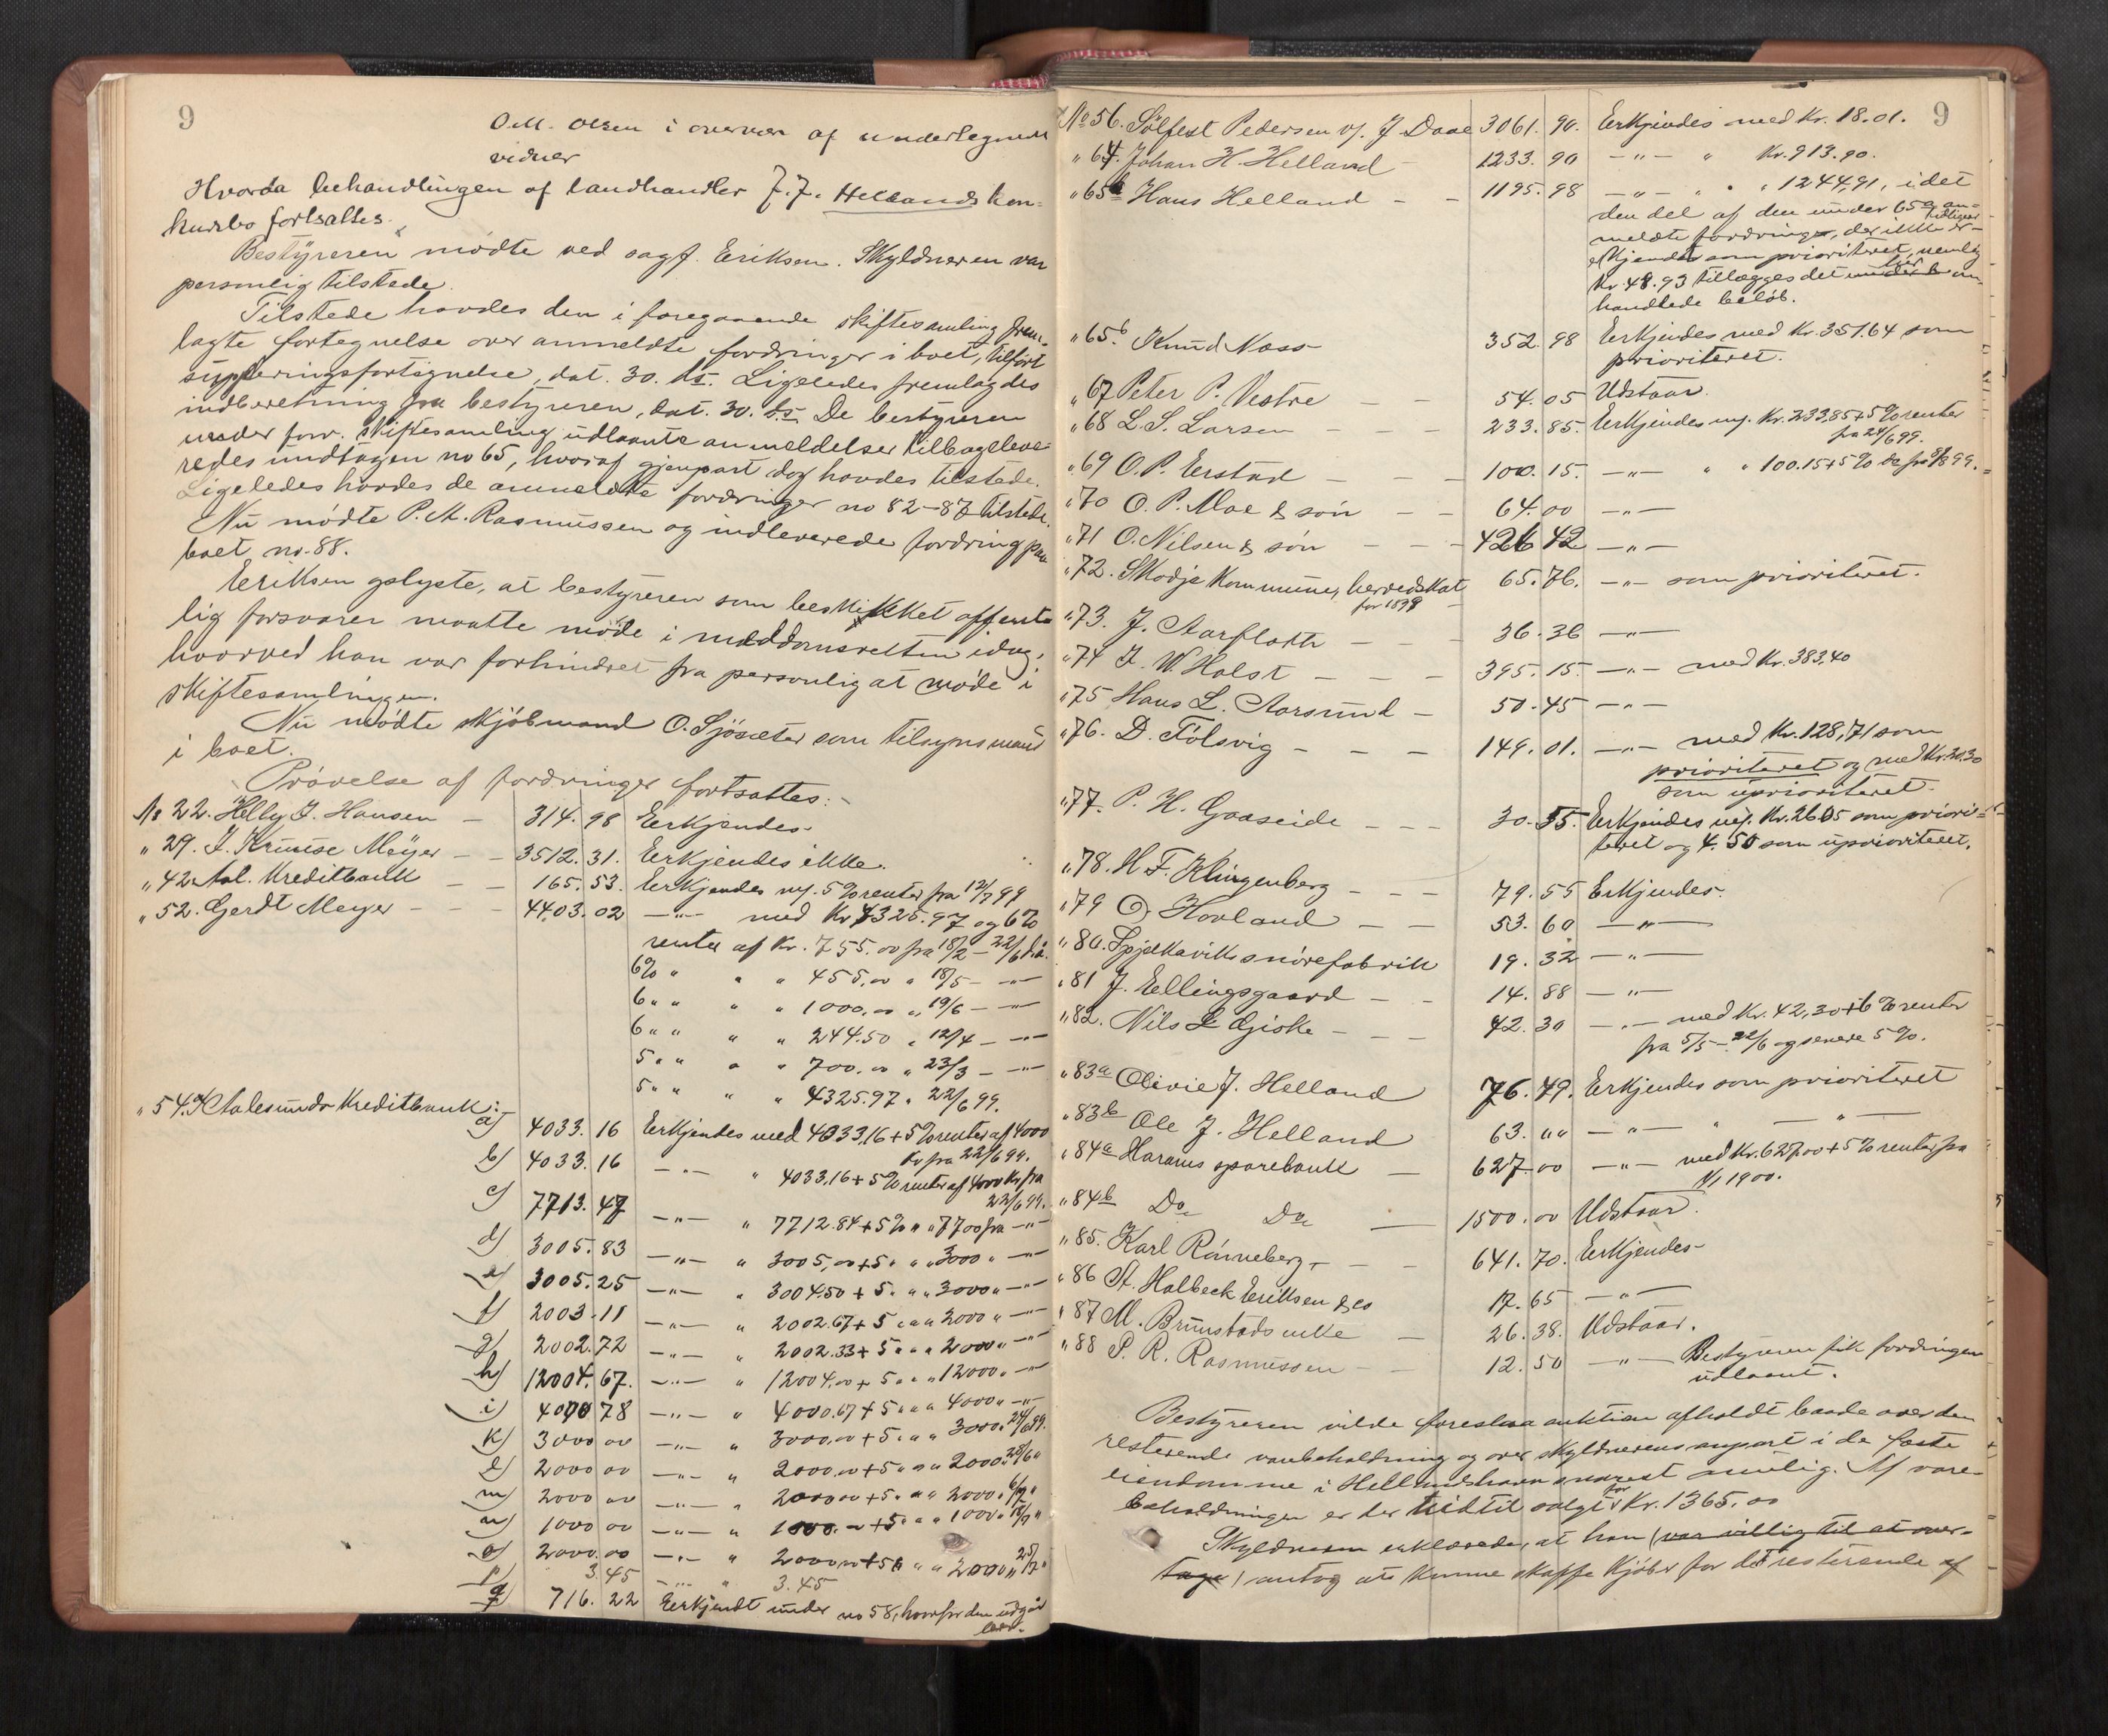 9
O.M. Olsen i overvær af undertegnede
vidner
Hvorda behandlingen af landhandler J. J. Hellands kon-
kursbo fortsattes.
Bestyreren mødte ved sagf. Eriksen. Skyldneren var
personlig tilstede.
Tilstede havdes den i foregaaende skiftesamling frem-
lagte fortegnelse over anmeldte fordringer i boet, tilført
suppleringsfortegnelse, dat. 30. ds. Ligeledes fremlagdes
indberetning fra bestyreren, dat. 30. ds. De bestyreren
under forr. skiftesamling udlaante anmeldelser tilbageleve-
redes undtagen no 65, hvoraf gjenpart dog havdes tilstede.
Ligeledes havdes de anmeldte fordringer no 82-87 tilstede.
Nu mødte P. A. Rasmussen og indleverede fordring paa
boet, no. 88.
Eriksen oplyste, at bestyreren som beskikket offent-
lig forsvarer maatte møde i meddomsretten idag,
hvorved han var forhindret fra personlig at møde i
skiftesamlingen.
Nu mødte kjøbmand O. Sjøsæter som tilsynsmand
i boet.
Prøvelse af fordringer fortsattes:-
No 22. Helly J. Hansen - 314. 98 Erkjendes.
" 29. J. Kruuse Meyer - - 3512. 31. Erkjendes ikke.
" 42. Aal. Kreditbank - - 165. 53. Erkjendes m/. 5% renter fra 12/7 99
" 52. Gerdt Meyer - - - 4403. 02 —"— med Kr 4325.97 og 6%
renter af Kr. 755.00 fra 18/2 - 22/6 d.å.
6% " " " 455,00 " 18/5 - —"—
6 " " " " 1000,00 " 19/6 - —"—
6 " " " " 244.50 " 12/4 - —"—
5 " " " " 700.00 " 23/3 - —"—
5 " " " " 4325.97 " 22/6 99.
" 54. Aalesunds Kreditbank:
a) 4033. 16 Erkjendes med 4033,16 + 5% renter af 4000
Kr fra 22/6 99.
b) 4033. 16 —"— " 4033,16 + 5% renter af 4000 Kr fra
22/6 99.
c) 7713. 47 —"— " 7712.84 + 5% " " 7700 fra —"—
d) 3005. 83 —"— " 3005,00 + 5 " " " 3000 " —"—
e) 3005. 25 —"— " 3004.50 + 5 " " " 3000 " —"—
f) 2003. 11 —"— " 2002.67 + 5 " " " 2000 " —"—
g) 2002. 72 —"— " 2002.33 + 5 " " " 2000 " —"—
h) 12004. 67. —"— " 12004,00 + 5 " " " 12000 " —"—
i) 4000 78 —"— " 4000.67 + 5 " " " 4000 " —"—
k) 3000 00 —"— " 3000,00 + 5 " " " 3000 " 99.
l) 2000 00 —"— " 2000,00 + 5 " " " 2000 "
m) 2000 00 —"— " 2000,00 + 5 " " " 2000 "
n) 1000 00 —"— " 1000.00 + 5 " " " 1000 "
o) 2000. 00 —"— " 2000,00 + 5 " " " 2000 "
p) 3. 45 —"— " 3.45
q) 716. 22 Erkjendt under no 58, hvorfor den udgår
her.
9
No 56. Sølfest Pedersen v/. J Daae 3061. 90. Erkjendes med Kr. 18.01.
" 64. Johan H. Helland - 1233. 90 —"— " Kr. 913.90.
" 65 Hans Helland - - 1195. 98 —"— " " 1244,91, idet
den del af den under 65a an-
meldte fordring, der ikke er-
kjendes som prioriteret, nemlig
Kr. 48.93 tillægges det her
handlede beløb.
" 65b Knud Nass 352 98 Erkjendes med Kr. 351.64 som
prioriteret.
" 67 Peter P. Vestre - - 54. 05 Udstaar.
" 68 L. S. Larsen - - - 233. 85. Erkjendes m/. Kr. 233,85 + 5% renter
fra 24/6 99.
" 69 O. P. Erstad - - - 100. 15. —"— " " 100.15 + 5% do fra 99.
" 70 O. P. Moe & søn - - 64. 00 —"—
" 71 O. Nilsen & søn - - - 426 42 —"—
" 72. Skodje Kommune, herredskat 65. 76. —"— som prioriteret.
for 1898
" 73. J. Aarfloth - - - 36. 36 —"—
" 74 J. W. Holst - - - 395. 15. —"— med Kr. 383,40
" 75 Hans L. Aarsund - 50. 45 —"—
" 76. D. Tolsvig - - - 149. 01. —"— med Kr. 128,71 som
prioriteret og med Kr. 20.30
som uprioriteret.
" 77. P. H. Gaaseide - - - 30. 55. Erkjendes m/. Kr. 26.05 som priori-
teret og 4.50 som uprioriteret.
" 78. H F. Klingenberg - - - 79. 55 Erkjendes.
" 79 O. Hovland - - 53. 60 —"—
" 80. Spjelkaviks snørefabrik 19. 32 —"—
" 81 J. Ellingsgaard - - 14. 88 —"—
" 82. Nils L Giske - - - 42. 30 —"— med Kr. 42,30 + 6% renter
fra 5/5 - 22/6 og senere 5%.
" 83a Olivie J. Helland 76. 49. Erkjendes som prioriteret
" 83b Ole J. Helland 63. "" —"— " —"—
" 84a Harams sparebank - 627. 00 —"— med Kr. 627,00 + 5% renter fra
1/1 1900.
" 84b Do Do — 1500. 00 Udstaar.
" 85. Karl Rønneberg - - - 641. 70. Erkjendes
" 86 St. Holbeck Eriksen & co 17. 65 —"—
" 87 M. Brunstads enke - 26. 38. Udstaar.
" 88 P. R. Rasmussen - - 12. 50 —"— Bestyreren fik fordringen
udlaant.
Bestyreren vilde foreslaa auktion afholdt baade over den
resterende varebeholdning og over skyldnerens anpart i de faste
eiendomme i Hellandshavn snarest mulig. Af vare-
beholdningen er der hidtil solgt for Kr. 1365.00
Skyldneren erklærede, at han (var villig til at over-
tage) antog at kunne skaffe kjøber for det resterende af